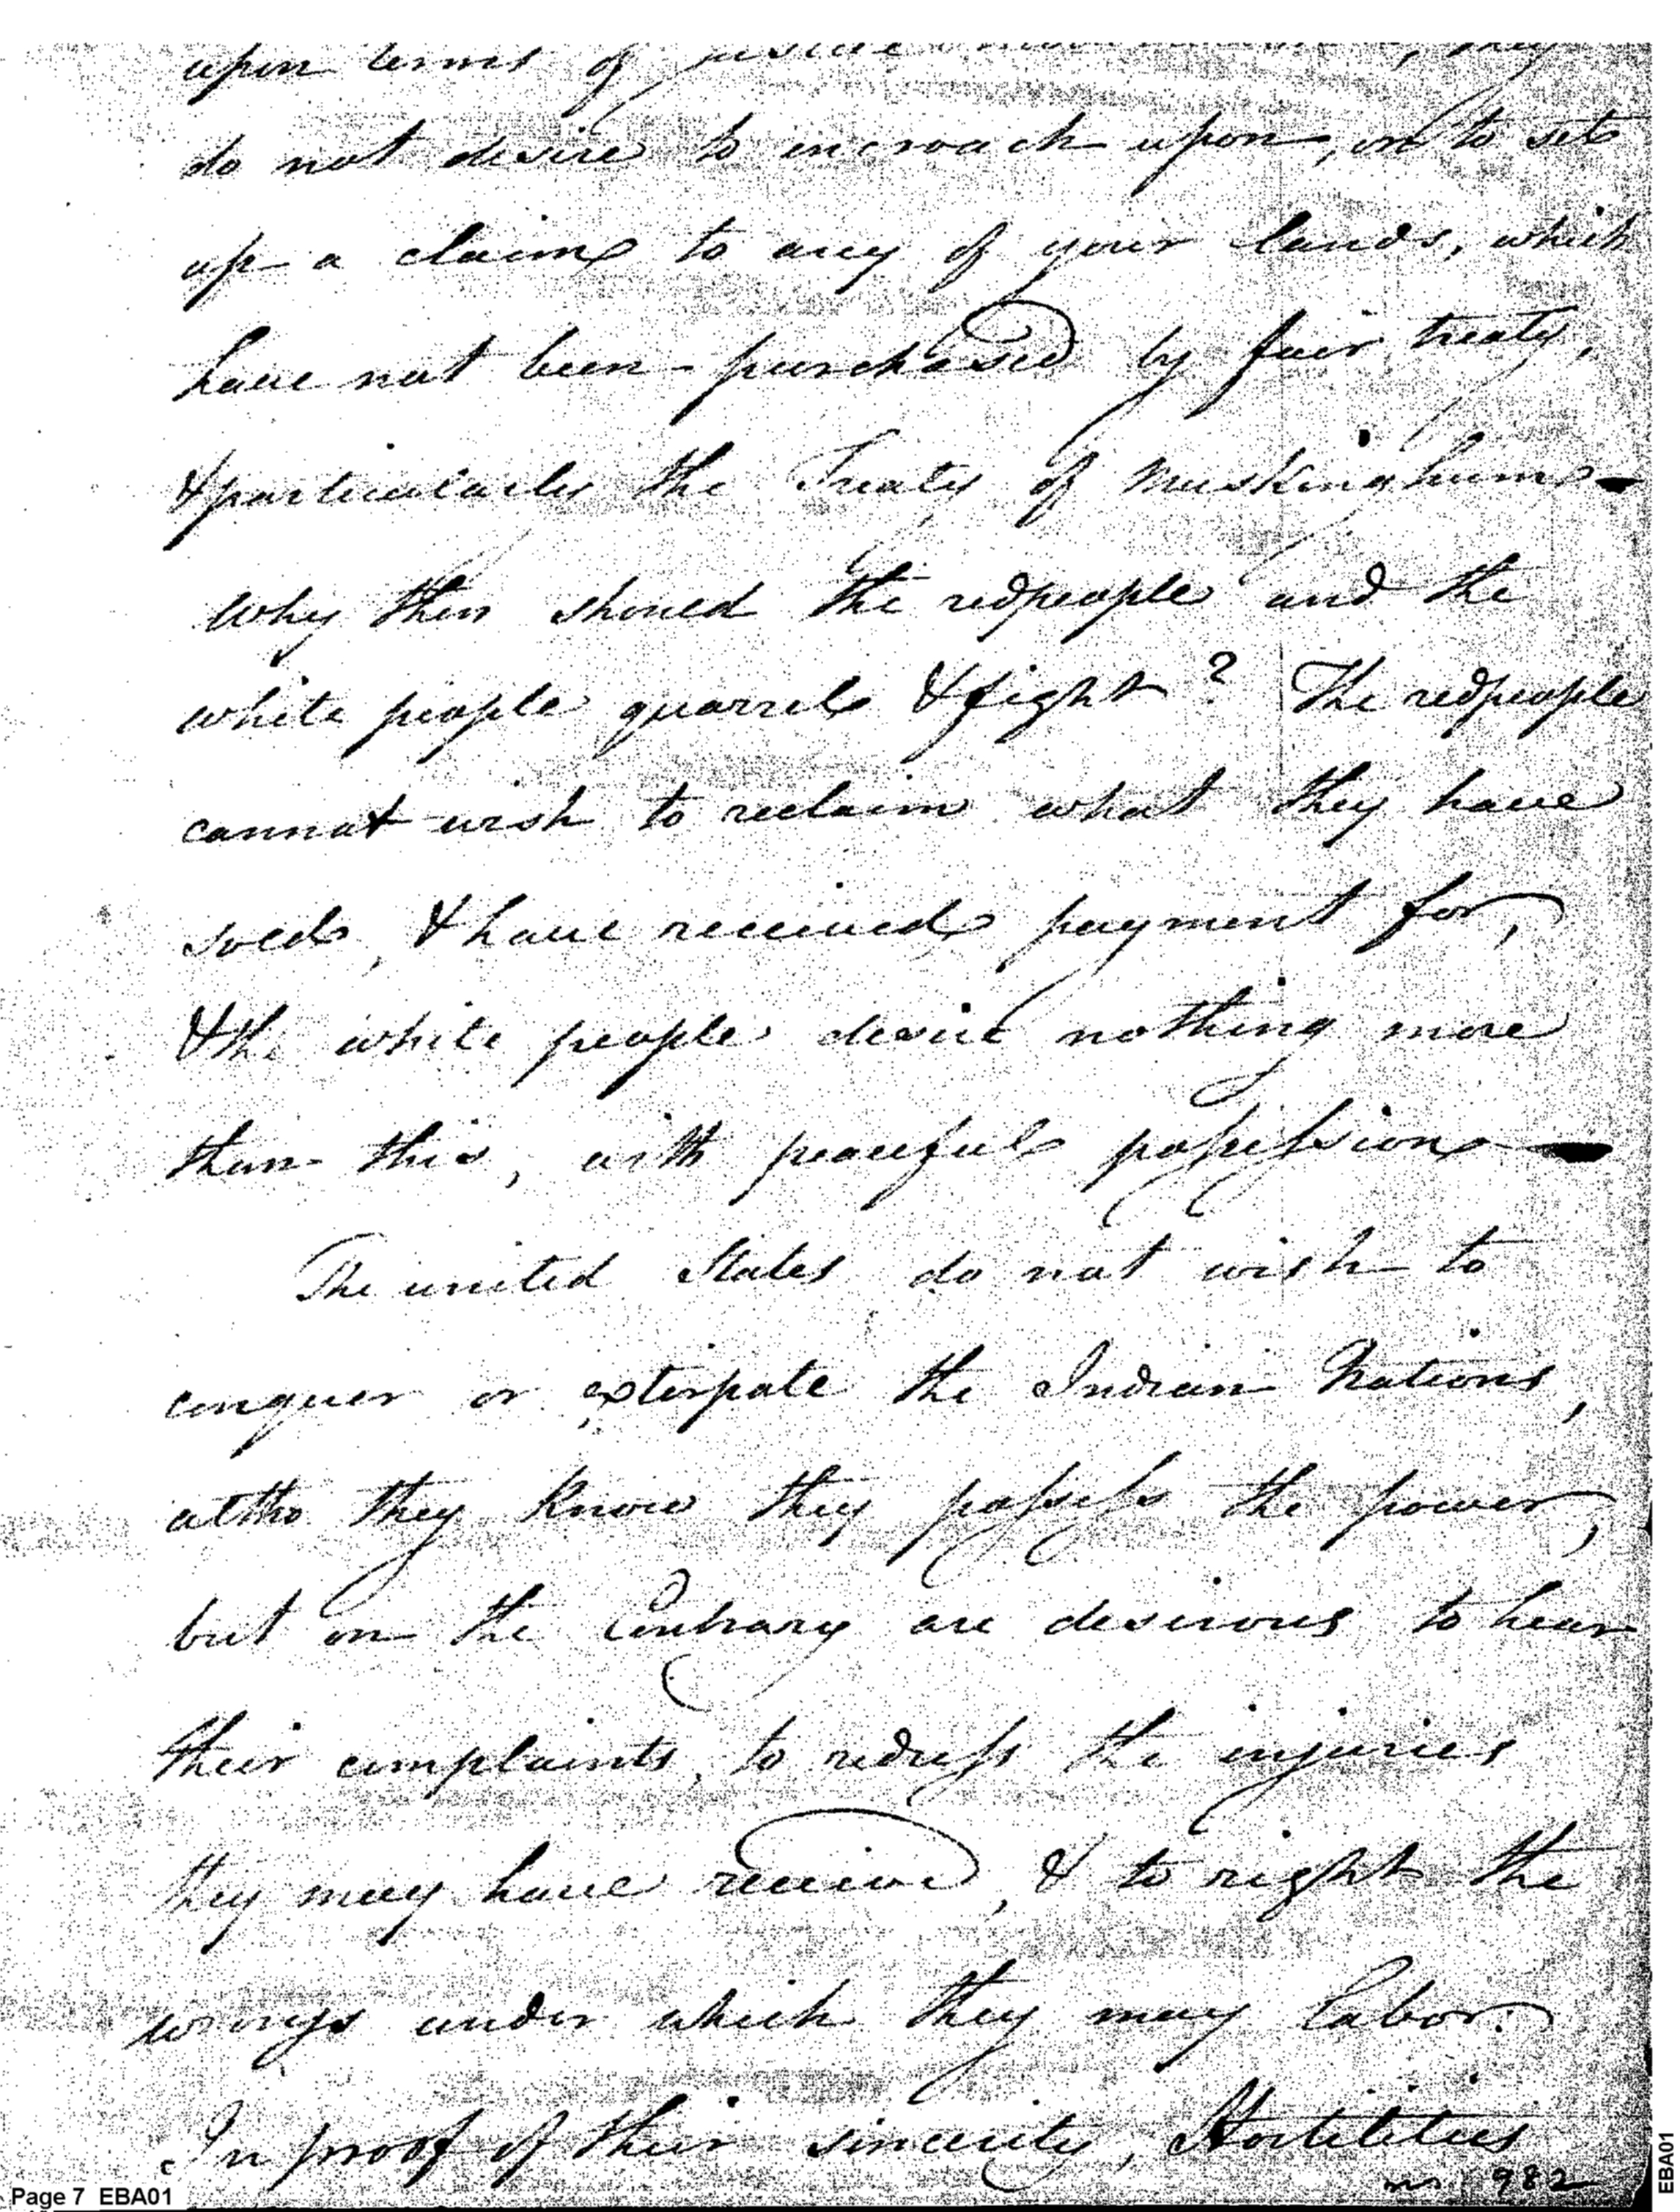 upon terms of justice they
do not desire to incroach upon, or to set
up a claim to any of your lands, which
have not been purchased by fair treaty,
& particularly the Treaty of Muskinghum —
Why then should the redpeople and the
white people quarrel & fight? The redpeople
cannot wish to reclaim what they have
sold, & have received payment for,
& the white people desire nothing more
than this, with peaceful possession —
The united States do not wish to
conquer or exterpate the Indian Nations,
altho they know they possess the power,
but on the Contrary are desirous to hear
their complaints, to redress the injuries
they may have received, & to right the
wrongs under which they may labor.
In proof of their sincerity, Hostilities
982
Page 7 EBA01
EBA01